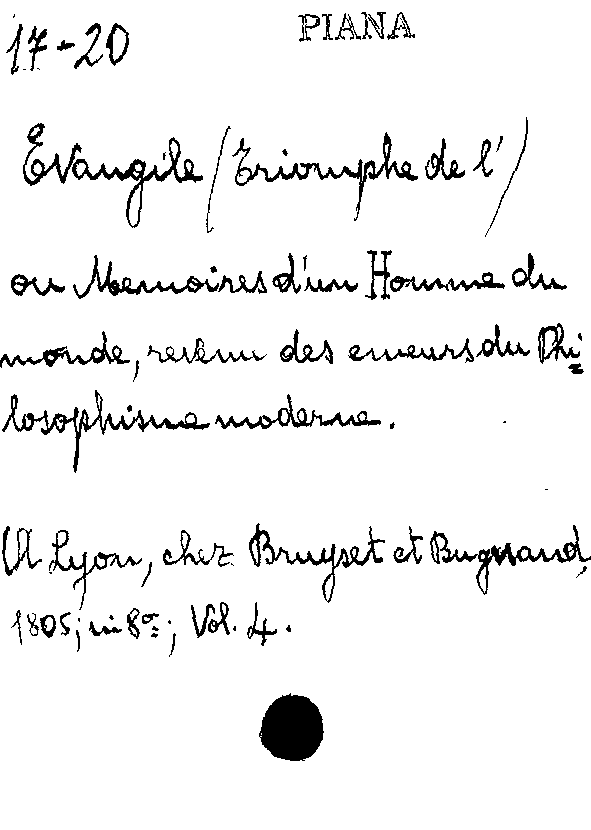 17-20 PIANA
Evangile (Triomphe de l')
ou Memoires d'un Homme du
monde, revenu des erreurs du Phi=
losophisme moderne.
A Lyon, chez Bruyset et Bugnand,
1805; in 8º; Vol. 4.